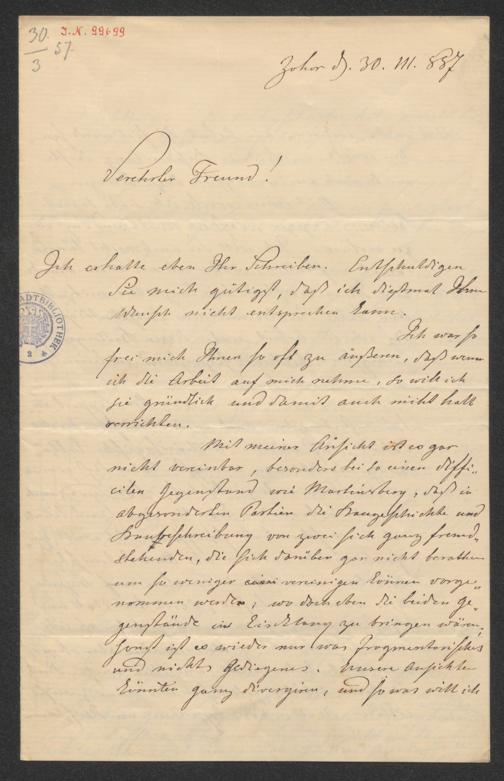 30.
3
57.
J.N. 99699
Zohor d. 30. III. 887
Verehrter Freund!
Ich erhalte eben Ihr Schreiben. Entschuldigen
Sie mich gütigst, daß ich dießmal Ihrem
Wunsch nicht entsprechen kann.
Ich war so
frei mich Ihnen so oft zu äußern, daß wenn
ich die Arbeit auf mich nehme, so will ich
sie gründlich und damit auch nicht halb
verrichten.
Mit meiner Ansicht ist es gar
nicht vereinbar, besonders bei so einen diffi-
cilen Gegenstand wie Martinsberg, daß in
abgesonderten Partien die Baugeschichte und
Baubeschreibung von zwei sich ganz fremd-
stehenden, die sich darüber gar nicht berathen
um so weniger vereinigen können vorge-
nommen werden, wo doch eben die beiden Ge-
genstände in Einklang zu bringen wären,
sonst ist es wieder nur was fragmentarisches
und nichts Gediegenes. Unsere Ansichten
könnten ganz divergiren, und so was will ich
STADTBIBLIOTHEK